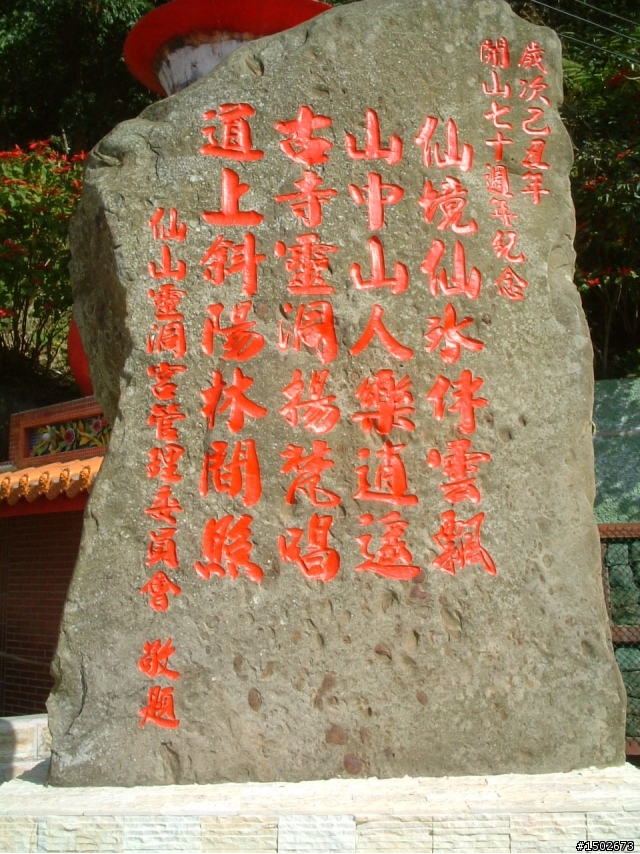 歲次己丑年
開山七十週年紀念
仙境仙水伴雲飄
山中山人樂逍遙
古寺靈洞揚梵唱
道上斜陽林間照
仙山靈洞宮管理委員會 敬題
#1502673